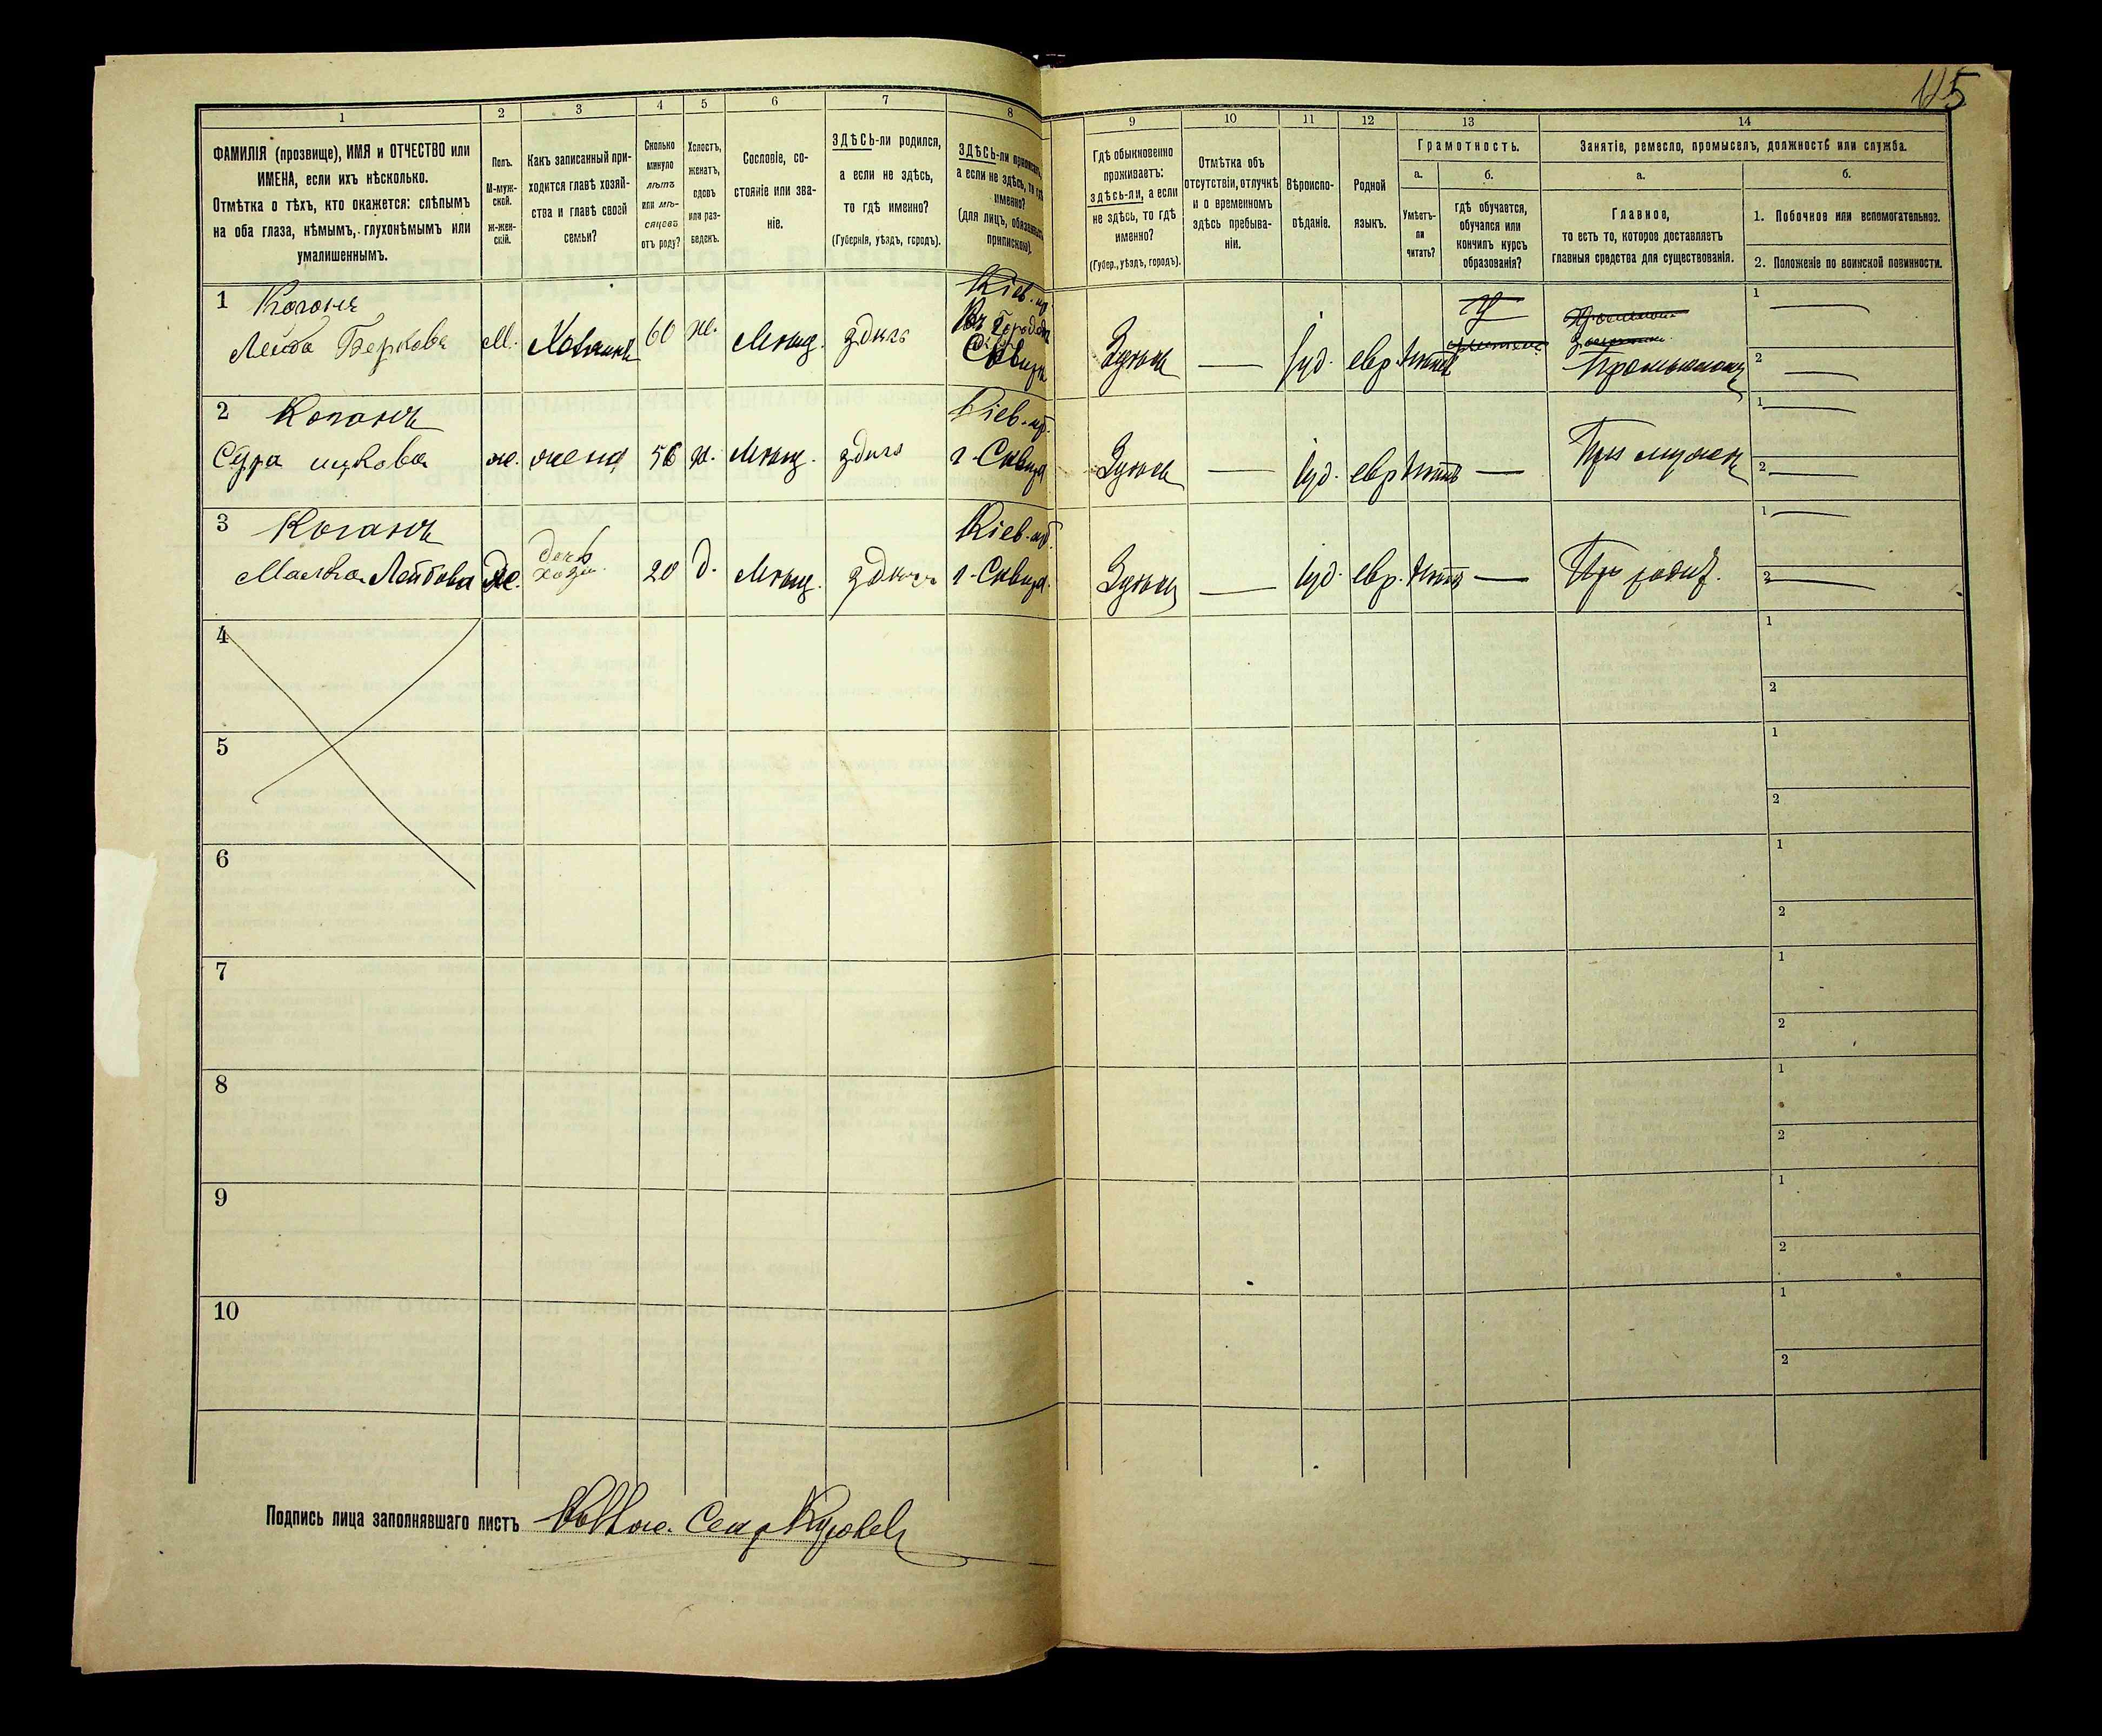 115
1
2
3
4
5
6
7
8
ФАМИЛІЯ (прозвище), ИМЯ и ОТЧЕСТВО или
ИМЕНА, если ихъ нѣсколько.
Отмѣтка о тѣхъ, кто окажется: слѣпымъ
на оба глаза, нѣмымъ, глухонѣмымъ или
умалишеннымъ.
Полъ.
М-муж-
ской.
Ж-жен-
скій.
Какъ записанный при-
ходится главѣ хозяй-
ства и главѣ своей
семьи?
Сколько
минуло
лѣтъ
или мѣ-
сяцевъ
отъ роду?
Холостъ,
женатъ,
вдовъ
или раз-
веденъ.
Сословіе, со-
стояніе или зва-
ніе.
ЗДѢСЬ-ли родился,
а если не здѣсь,
то гдѣ именно?
(Губернія, уѣздъ, городъ).
ЗДѢСЬ-ли приписанъ,
а если не здѣсь, то гдѣ
именно?
(для лицъ, обязанныхъ
припискою).
9
10
11
12
13
14
Гдѣ обыкновенно
проживаетъ:
здѣсь-ли, а если
не здѣсь, то гдѣ
именно?
(Губер., уѣздъ, городъ).
Отмѣтка объ
отсутствіи, отлучкѣ
и о временномъ
здѣсь пребыва-
ніи.
Вѣроиспо-
вѣданіе.
Родной
языкъ.
Грамотность.
а.
б.
Умѣетъ-
ли
читать?
гдѣ обучается,
обучался или
кончилъ курсъ
образованія?
Занятіе, ремесло, промыселъ, должность или служба.
а.
б.
Главное,
то есть то, которое доставляетъ
главныя средства для существованія.
1. Побочное или вспомогательное.
2. Положеніе по воинской повинности.
1 Коганъ
Лейба Беркова М. Хозяинъ 60 ж. Мѣщ. здѣсь
Кіев. губ.
Сквира
Здѣсь — іуд. евр. нѣтъ
1 —
2 —
2 Коганъ
Сура ж. жена 56 ж. Мѣщ. здѣсь
Кіев. губ.
г. Сквира
Здѣсь — іуд. евр. нѣтъ — При мужѣ
1 —
2 —
3 Коганъ
Малка Лейбова ж. дочь хозя. 20 д. Мѣщ. здѣсь
Кіев. губ.
г. Сквира
Здѣсь — іуд. евр. нѣтъ — При родит.
1 —
2 —
4
1
2
5
1
2
6
1
2
7
1
2
8
1
2
9
1
2
10
1
2
Подпись лица заполнявшаго листъ